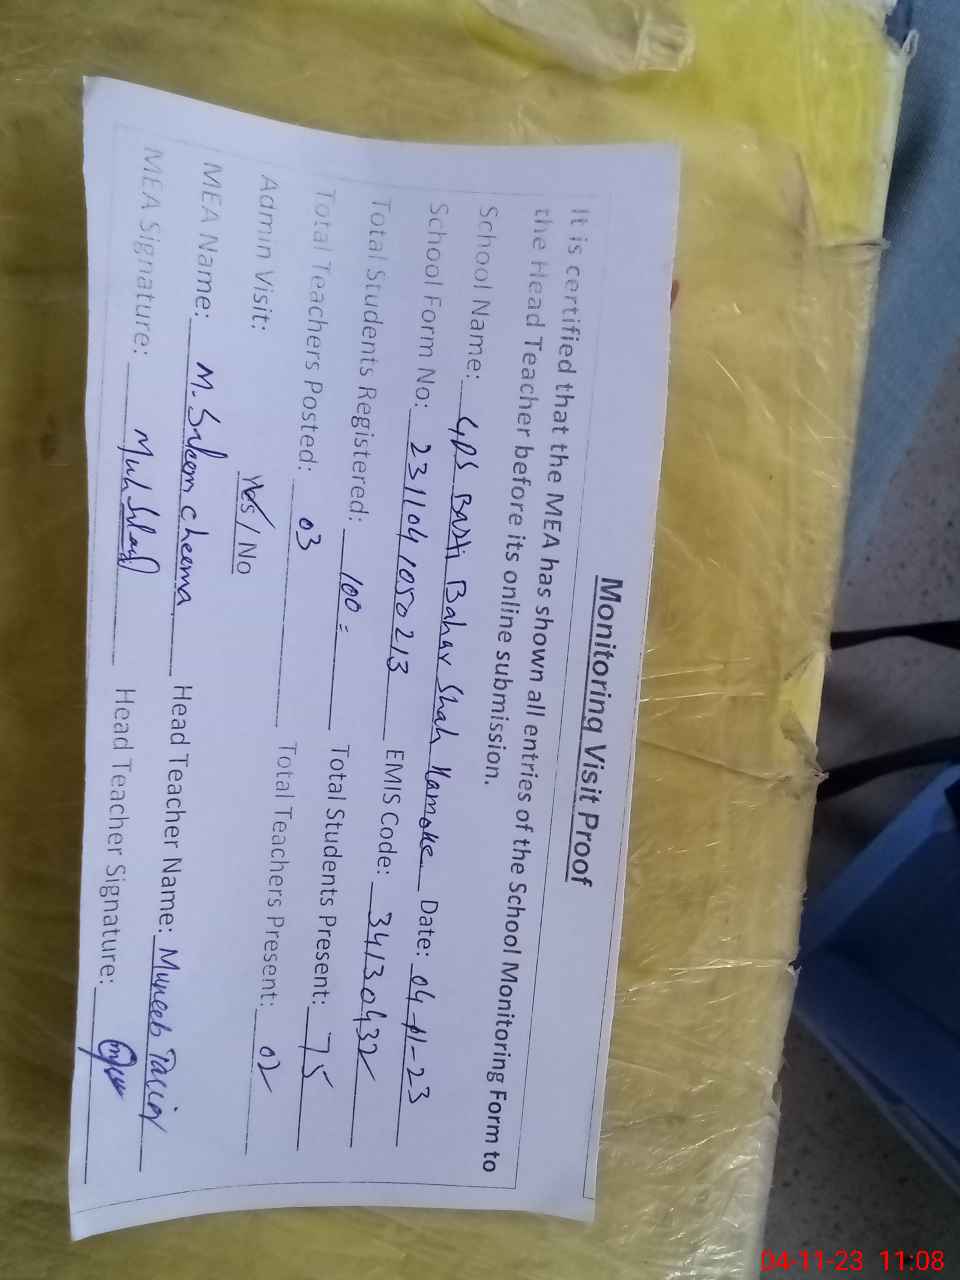 Monitoring Visit Proof
It is certified that the MEA has shown all entries of the School Monitoring Form to
the Head Teacher before its online submission.
School Name: GPS Basti Bahar Shah Kamoke Date: 04-11-23
School Form No: 231104 1050213 EMIS Code: 34130432
Total Students Registered: 100= Total Students Present: 75
Total Teachers Posted: 03 Total Teachers Present: 02
Admin Visit: Yes / No
MEA Name: M. Saleem cheema Head Teacher Name: Muneeb
MEA Signature: Head Teacher Signature:
04-11-23 11:08